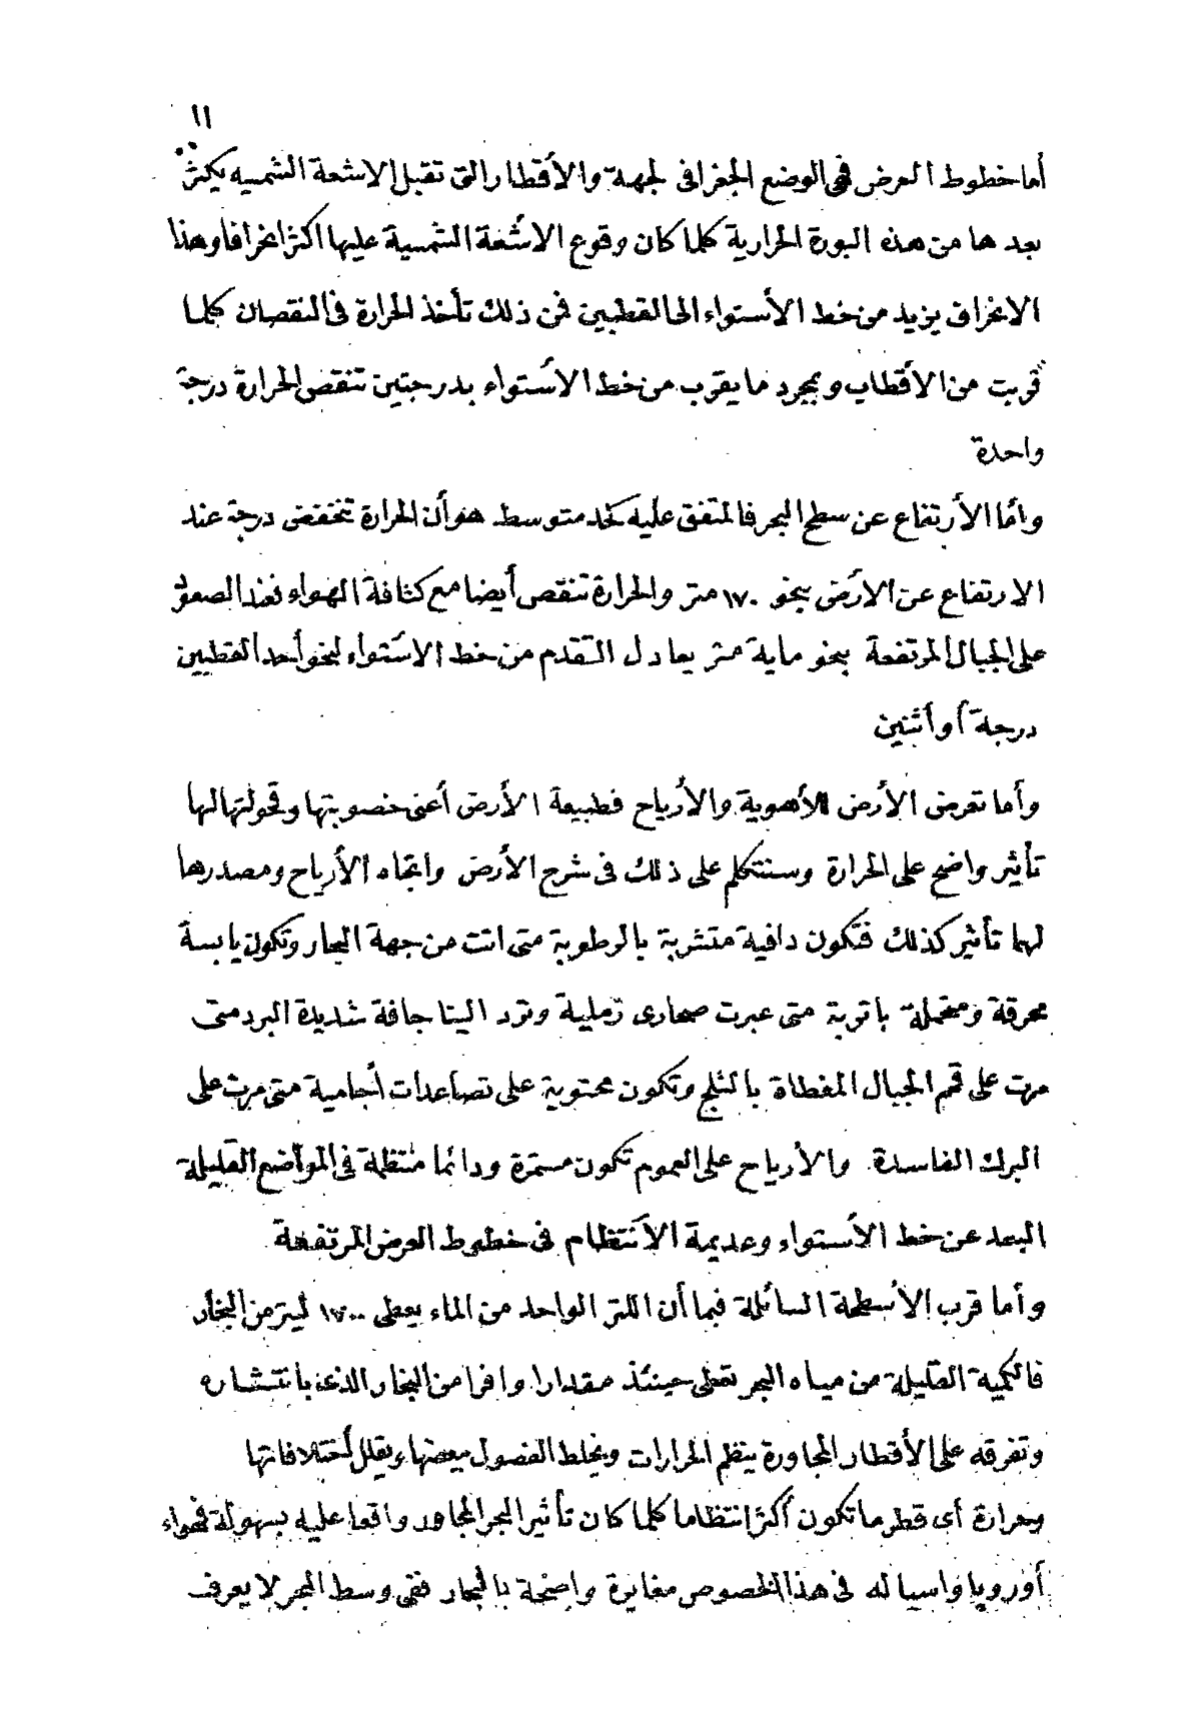 ١١
أما خطوط العرض فهي الوضع الجغرافى لجهة والأقطار التى تقبل الاشعة الشمسيه يكثر
بعد ها من هذه البورة الحرارية كلما كان وقوع الاشعة الشمسية عليها اكثر انحرافا وهذا
الانحراف يزيد من خط الأستواء الى القطبين فمن ذلك تأخذ الحرارة فى النقصان كلما
قربت من الأقطاب وبمجرد ما يقرب من خط الأستواء بدرجتين تنقص الحرارة درجة
واحدة
وأما الأرتفاع عن سطح البحر فالمتفق عليه كحد متوسط هو أن الحرارة تنخفض درجة عند
الارتفاع عن الأرض بنحو ١٧٠ متر والحرارة تنقص أيضا مع كثافة الهواء فعند الصعود
على الجبال المرتفعة بنحو ماية متر يعادل التقدم من خط الاستواء لنحو أحد القطبين
درجة أو أثنين
وأما تعرض الأرض للأهوية والأرياح فطبيعة الأرض أعنى خصوبتها وقحولتها لها
تأثير واضح على الحرارة وسنتكلم على ذلك فى شرح الأرض واتجاه الأرياح ومصدرها
لهما تأثير كذلك فتكون دافية متشربة بالرطوبة متى اتت من جهة البحار وتكون يابسة
محرقة ومحملة باتربة متى عبرت صحارى رملية وترد الينا جافة شديدة البرد متى
مرت على قمم الجبال المغطاة بالثلج وتكون محتوية على تصاعدات أجامية متى مرت على
البرك الفاسدة والأرياح على العموم تكون مستمرة ودائما منتظمة فى المواضع القليلة
البعد عن خط الأستواء وعديمة الأنتظام فى خطوط العرض المرتفعة
وأما قرب الأسطحة السائلة فبما أن اللتر الواحد من الماء يعطى ١٧٠٠ ليتر من البخار
فالكمية القليلة من مياه البحر تعطى حينئذ مقدارا وافرا من البخار الذى بانتشاره
وتفرقه على الأقطار المجاورة ينظم الحرارات ويخلط الفصول ببعضها ويقلل أختلافاتها
وحرارة أى قطر ما تكون أكثر انتظاما كلما كان تأثير البحر المجاور واقعا عليه بسهولة فهواء
أوروپا واسيا له فى هذا الخصوص مغايرة واضحة بالبحار ففى وسط البحر لا يعرف